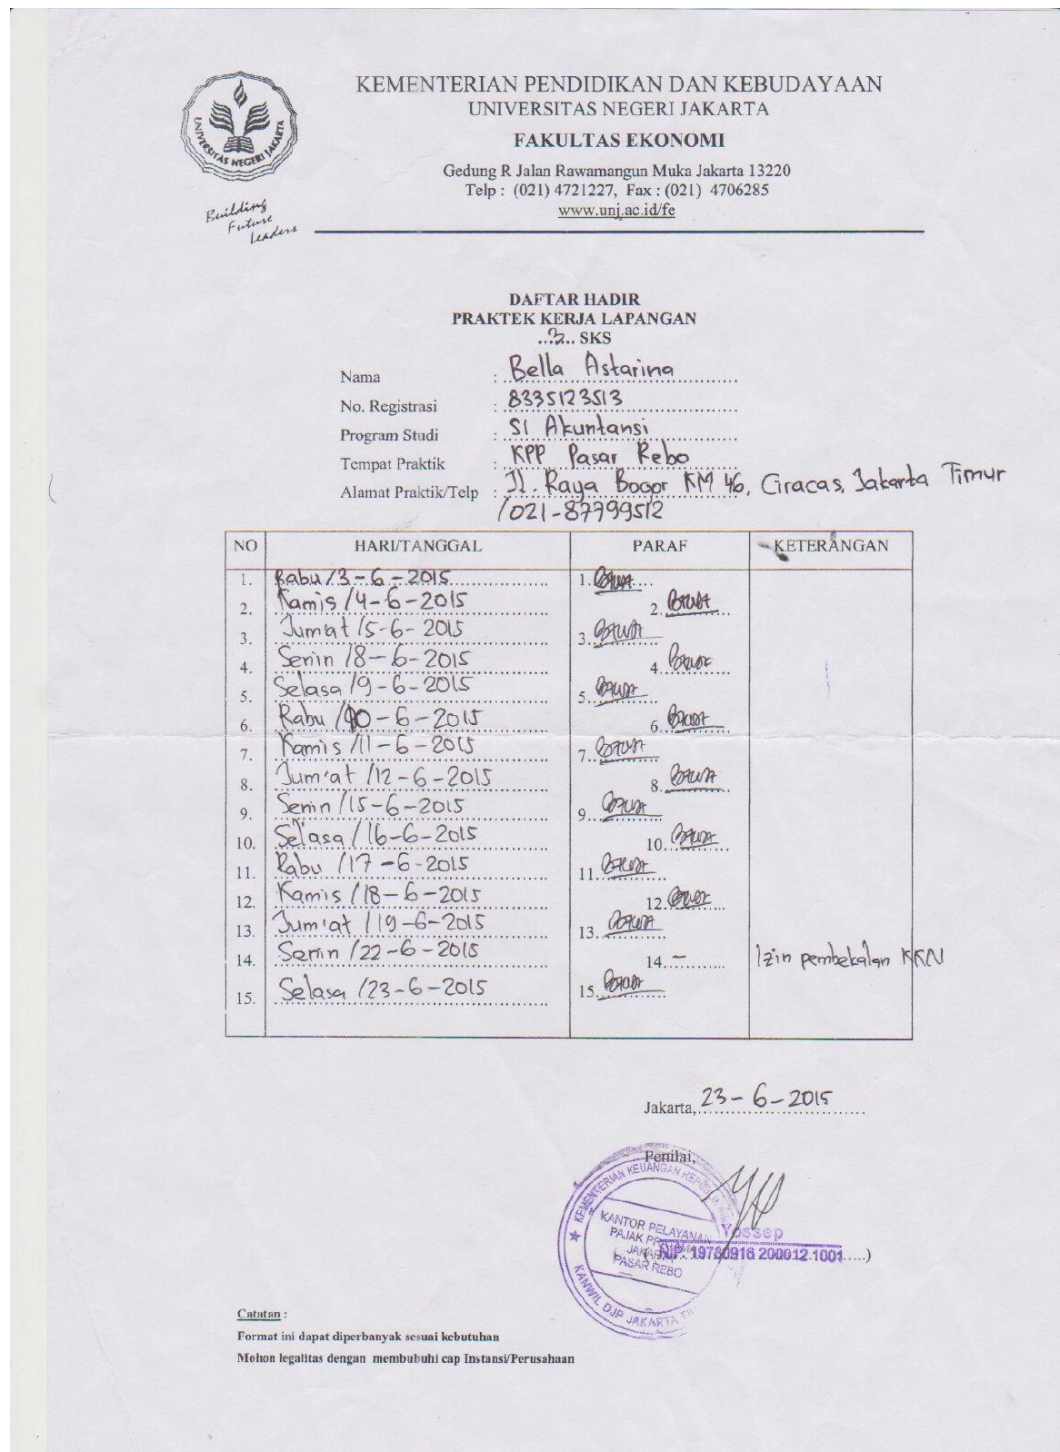 KEMENTERIAN PENDIDIKAN DAN KEBUDAYAAN
UNIVERSITAS NEGERI JAKARTA
FAKULTAS EKONOMI
Gedung R Jalan Rawamangun Muka Jakarta 13220
Telp : (021) 4721227, Fax : (021) 4706285
www.unj.ac.id/fe
UNIVERSITAS NEGERI JAKARTA
Building
Future
Leaders
DAFTAR HADIR
PRAKTEK KERJA LAPANGAN
...3.. SKS
Nama : Bella Astarina
No. Registrasi : 8335123513
Program Studi : S1 Akuntansi
Tempat Praktik : KPP Pasar Rebo
Alamat Praktik/Telp : Jl. Raya Bogor KM 46, Ciracas, Jakarta Timur
/021-87799512
NO HARI/TANGGAL PARAF KETERANGAN
1. Rabu /3-6-2015 1.
2. Kamis /4-6-2015 2.
3. Jum'at /5-6-2015 3.
4. Senin /8-6-2015 4.
5. Selasa /9-6-2015 5.
6. Rabu /10-6-2015 6.
7. Kamis /11-6-2015 7.
8. Jum'at /12-6-2015 8.
9. Senin /15-6-2015 9.
10. Selasa /16-6-2015 10.
11. Rabu /17-6-2015 11.
12. Kamis /18-6-2015 12.
13. Jum'at /19-6-2015 13.
14. Senin /22-6-2015 14. - Izin pembekalan KKN
15. Selasa /23-6-2015 15.
Jakarta, 23-6-2015
Penilai,
KEMENTERIAN KEUANGAN
KANTOR PELAYANAN
PAJAK
PASAR REBO
KANWIL DJP JAKARTA
Yossep
NIP. 19780916 200012 1001
Catatan :
Format ini dapat diperbanyak sesuai kebutuhan
Mohon legalitas dengan membubuhi cap Instansi/Perusahaan